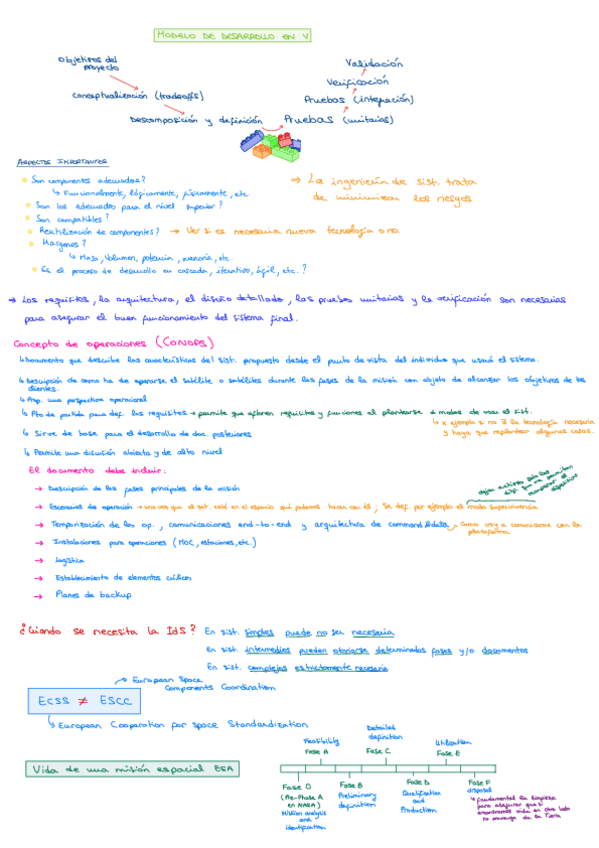 MODELO DE DESARROLLO EN V
Objetivos del
proyecto
Conceptualización (tradeoffs)
Descomposición y definición
Pruebas (unitarias)
Pruebas (integración)
Verificación
Validación
ASPECTOS IMPORTANTES
Son componentes adecuados?
↳ Funcionalmente, lógicamente, físicamente, etc.
Son los adecuados para el nivel superior?
Son compatibles?
Reutilización de componentes? → Ver si es necesaria nueva tecnología o no.
Márgenes?
↳ Masa, Volumen, potencia, memoria, etc.
Es el proceso de desarrollo en cascada, iterativo, ágil, etc.?
→ La ingeniería de sist. trata
de minimizar los riesgos
→ Los requisitos, la arquitectura, el diseño detallado, las pruebas unitarias y la verificación son necesarias
para asegurar el buen funcionamiento del sistema final.
Concepto de operaciones (CONOPS)
↳ Documento que describe las características del sist. propuesto desde el punto de vista del individuo que usará el sistema.
↳ Descripción de como ha de operarse el satélite o satélites durante las fases de la misión con objeto de alcanzar los objetivos de los
clientes.
una perspectiva operacional
↳ Pto de partida para def. los requisitos → permite que afloren requisitos y funciones al plantearse modos de usar el sist.
↳ x ejemplo si no ∃ la tecnología necesaria
y haya que replantear algunas cosas.
↳ Sirve de base para el desarrollo de doc. posteriores
↳ Permite una difusión abierta y de alto nivel
El documento debe incluir:
→ Descripción de las fases principales de la misión
→ Escenarios de operación → una vez que el sat. está en el espacio qué podemos hacer con él, Se def. por ejemplo el modo supervivencia
→ Temporización de las op., comunicaciones end-to-end y arquitectura de command &data → Como voy a comunicarme con la
plataforma
→ Instalaciones para operaciones (MOC, estaciones, etc.)
→ Logística
→ Establecimiento de elementos críticos
→ Planes de backup
¿Cuándo se necesita la IdS? En sist. simples puede no ser necesaria
En sist. intermedios pueden obviarse determinadas fases y/o documentos
En sist. complejos estrictamente necesaria
European Space
Components Coordination
ECSS ≠ ESCC
↳ European Cooperation for Space Standardization
Vida de una misión espacial ESA
Feasibility
Fase A
Detailed
definition
Fase C
Utilization
Fase E
Fase 0
(Pre-Phase A
en NASA)
Mission analysis
and
identification
Fase B
Preliminary
definition
Fase D
Qualification
and
Production
Fase F
disposal
↳ Fundamental la limpieza
para asegurar que si
encontramos vida en otro lado
no provenga de la Tierra